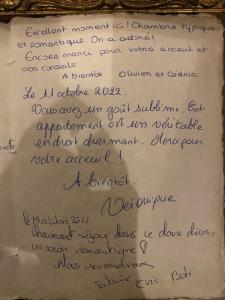 Excellent moment ici! Chambre typique
et romantique. On a adoré!
Encore merci pour votre acceuil et
vos conseils
A bientôt
Le 11 octobre 2022.
Vous avez un goût sublime. Cet
appartement est un véritable
endroit charmant. Merci pour
votre acceuil!
A bientôt.
Véronique
Charmant séjour dans ce doux décor,
un cocon romantique!
Nous reviendrons
Eric